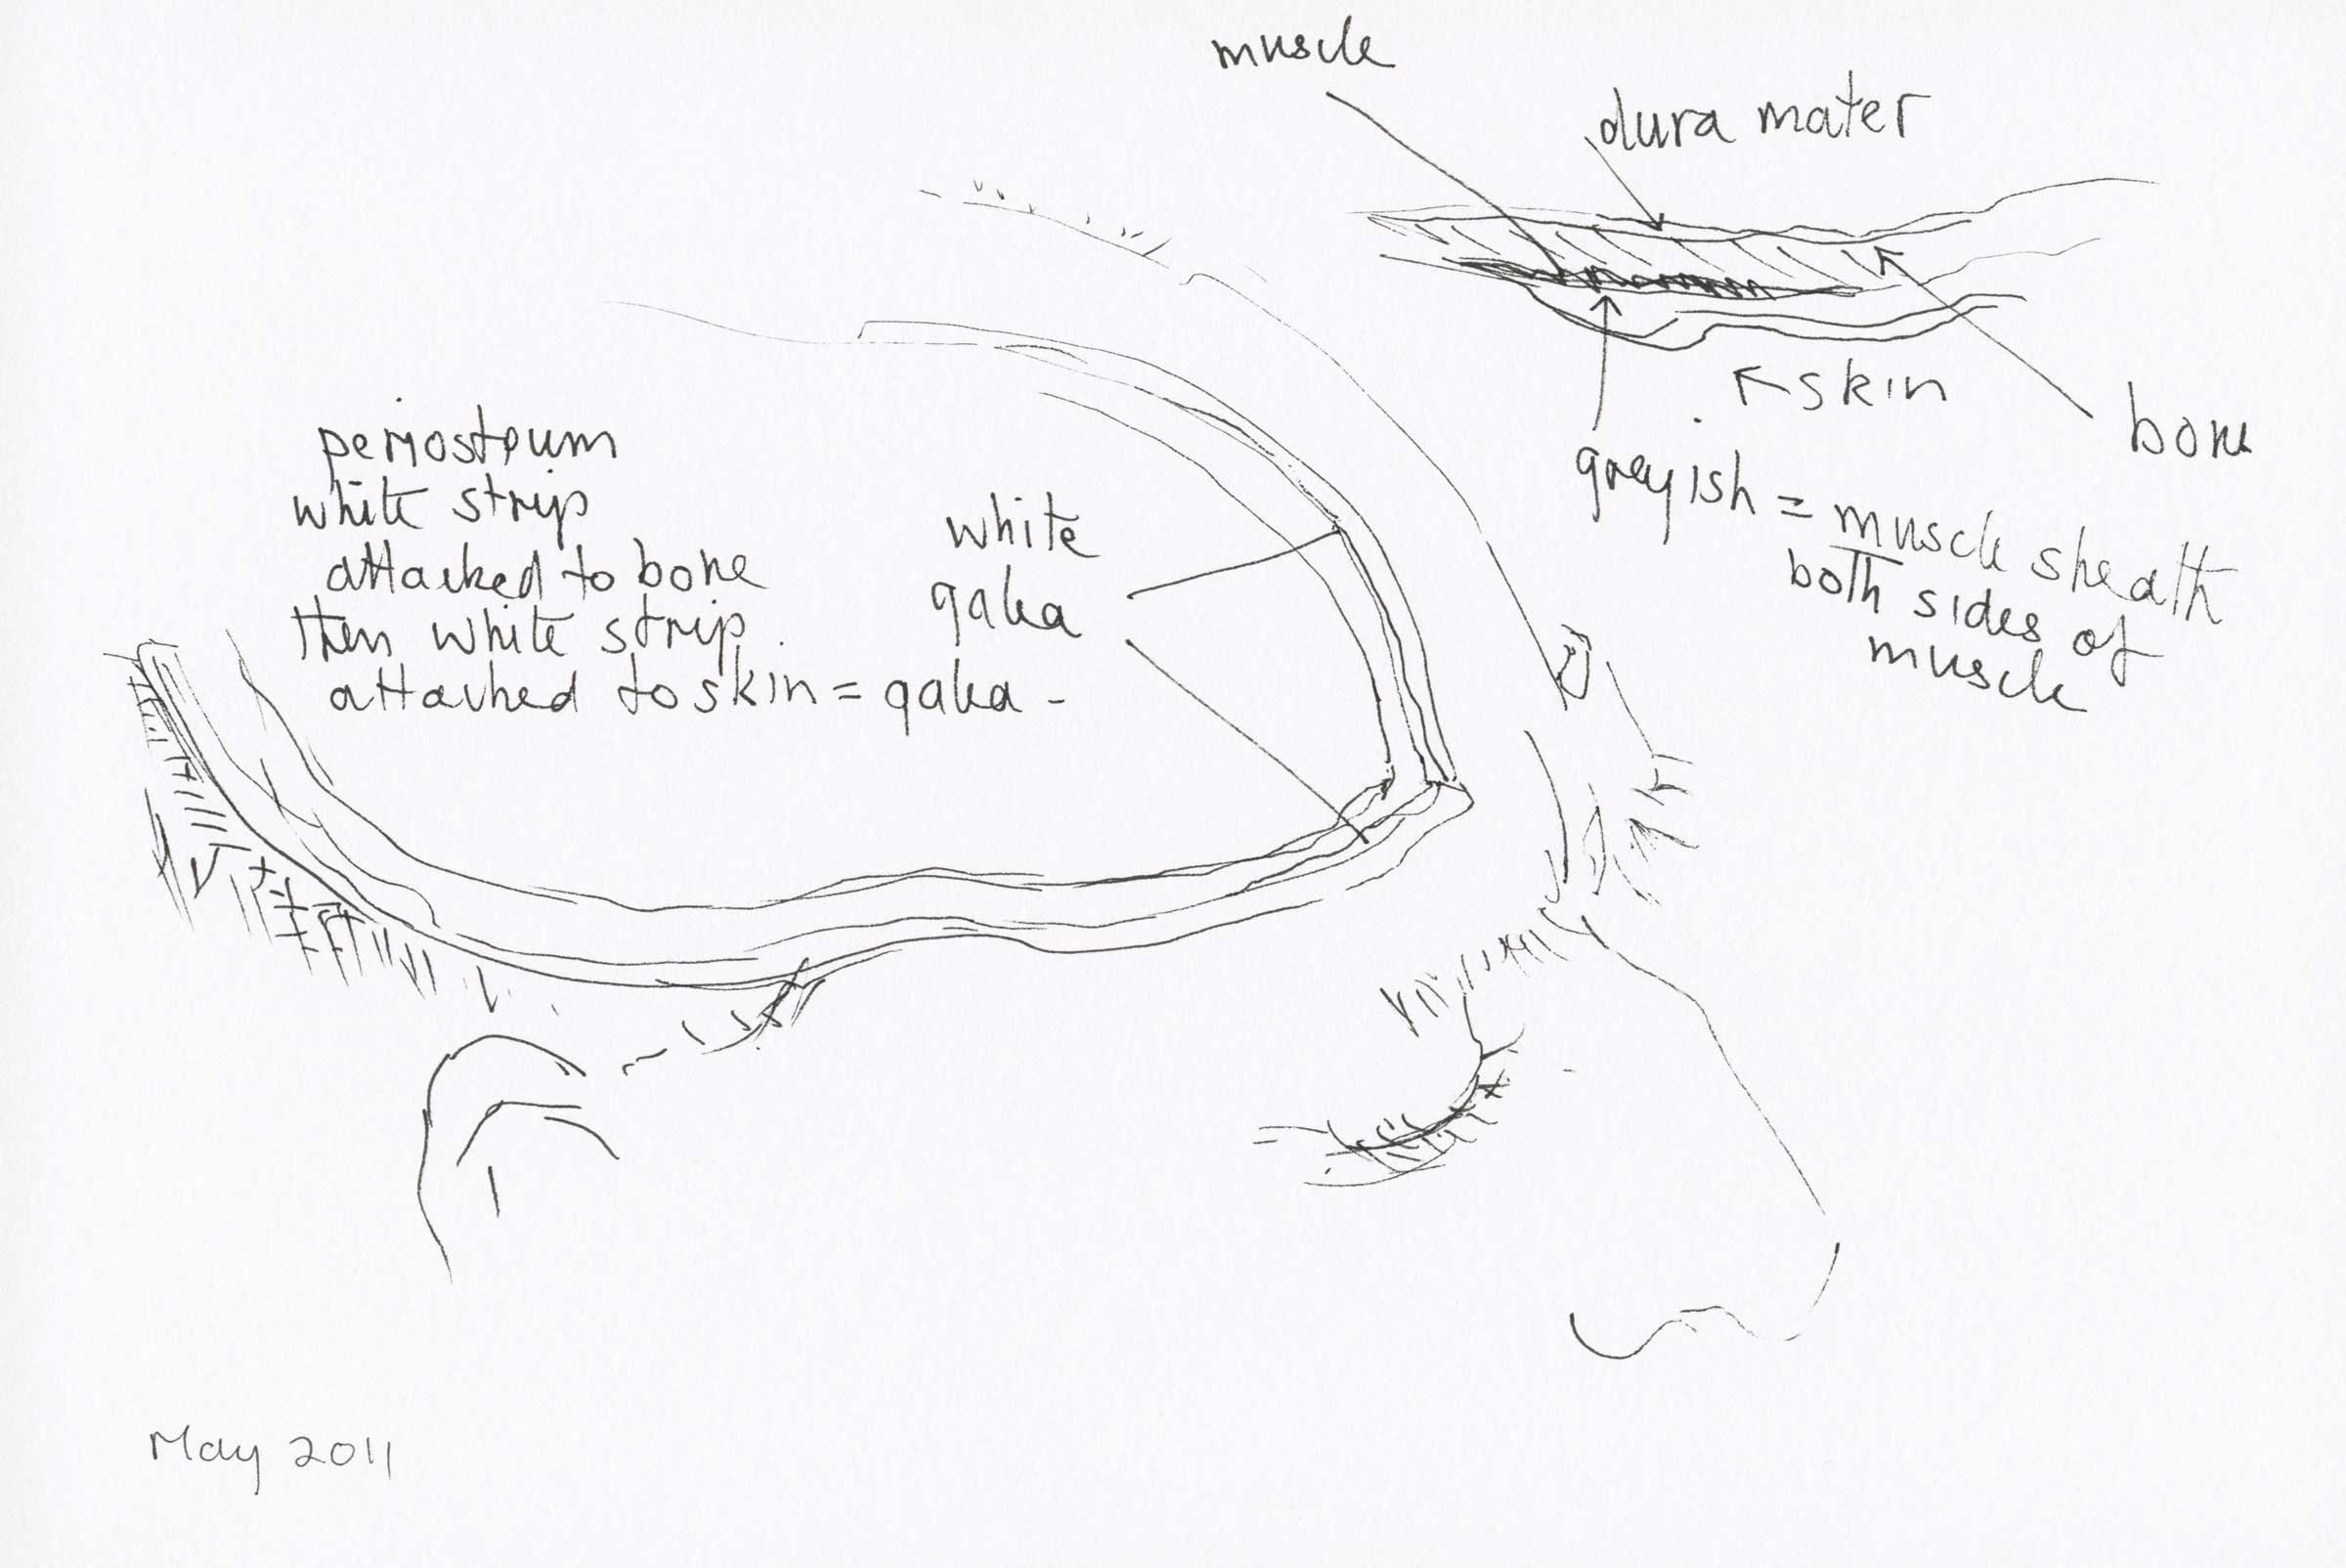 muscle
dura mater
skin
bone
greyish = muscle sheath
both sides of
muscle
periosteum
white strip
attached to bone
then white strip
attached to skin = galea -
white
galea
May 2011